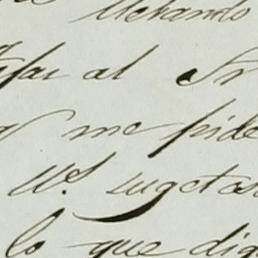 llevando
al Sr
me pide
V.S. sugetas
lo que dig